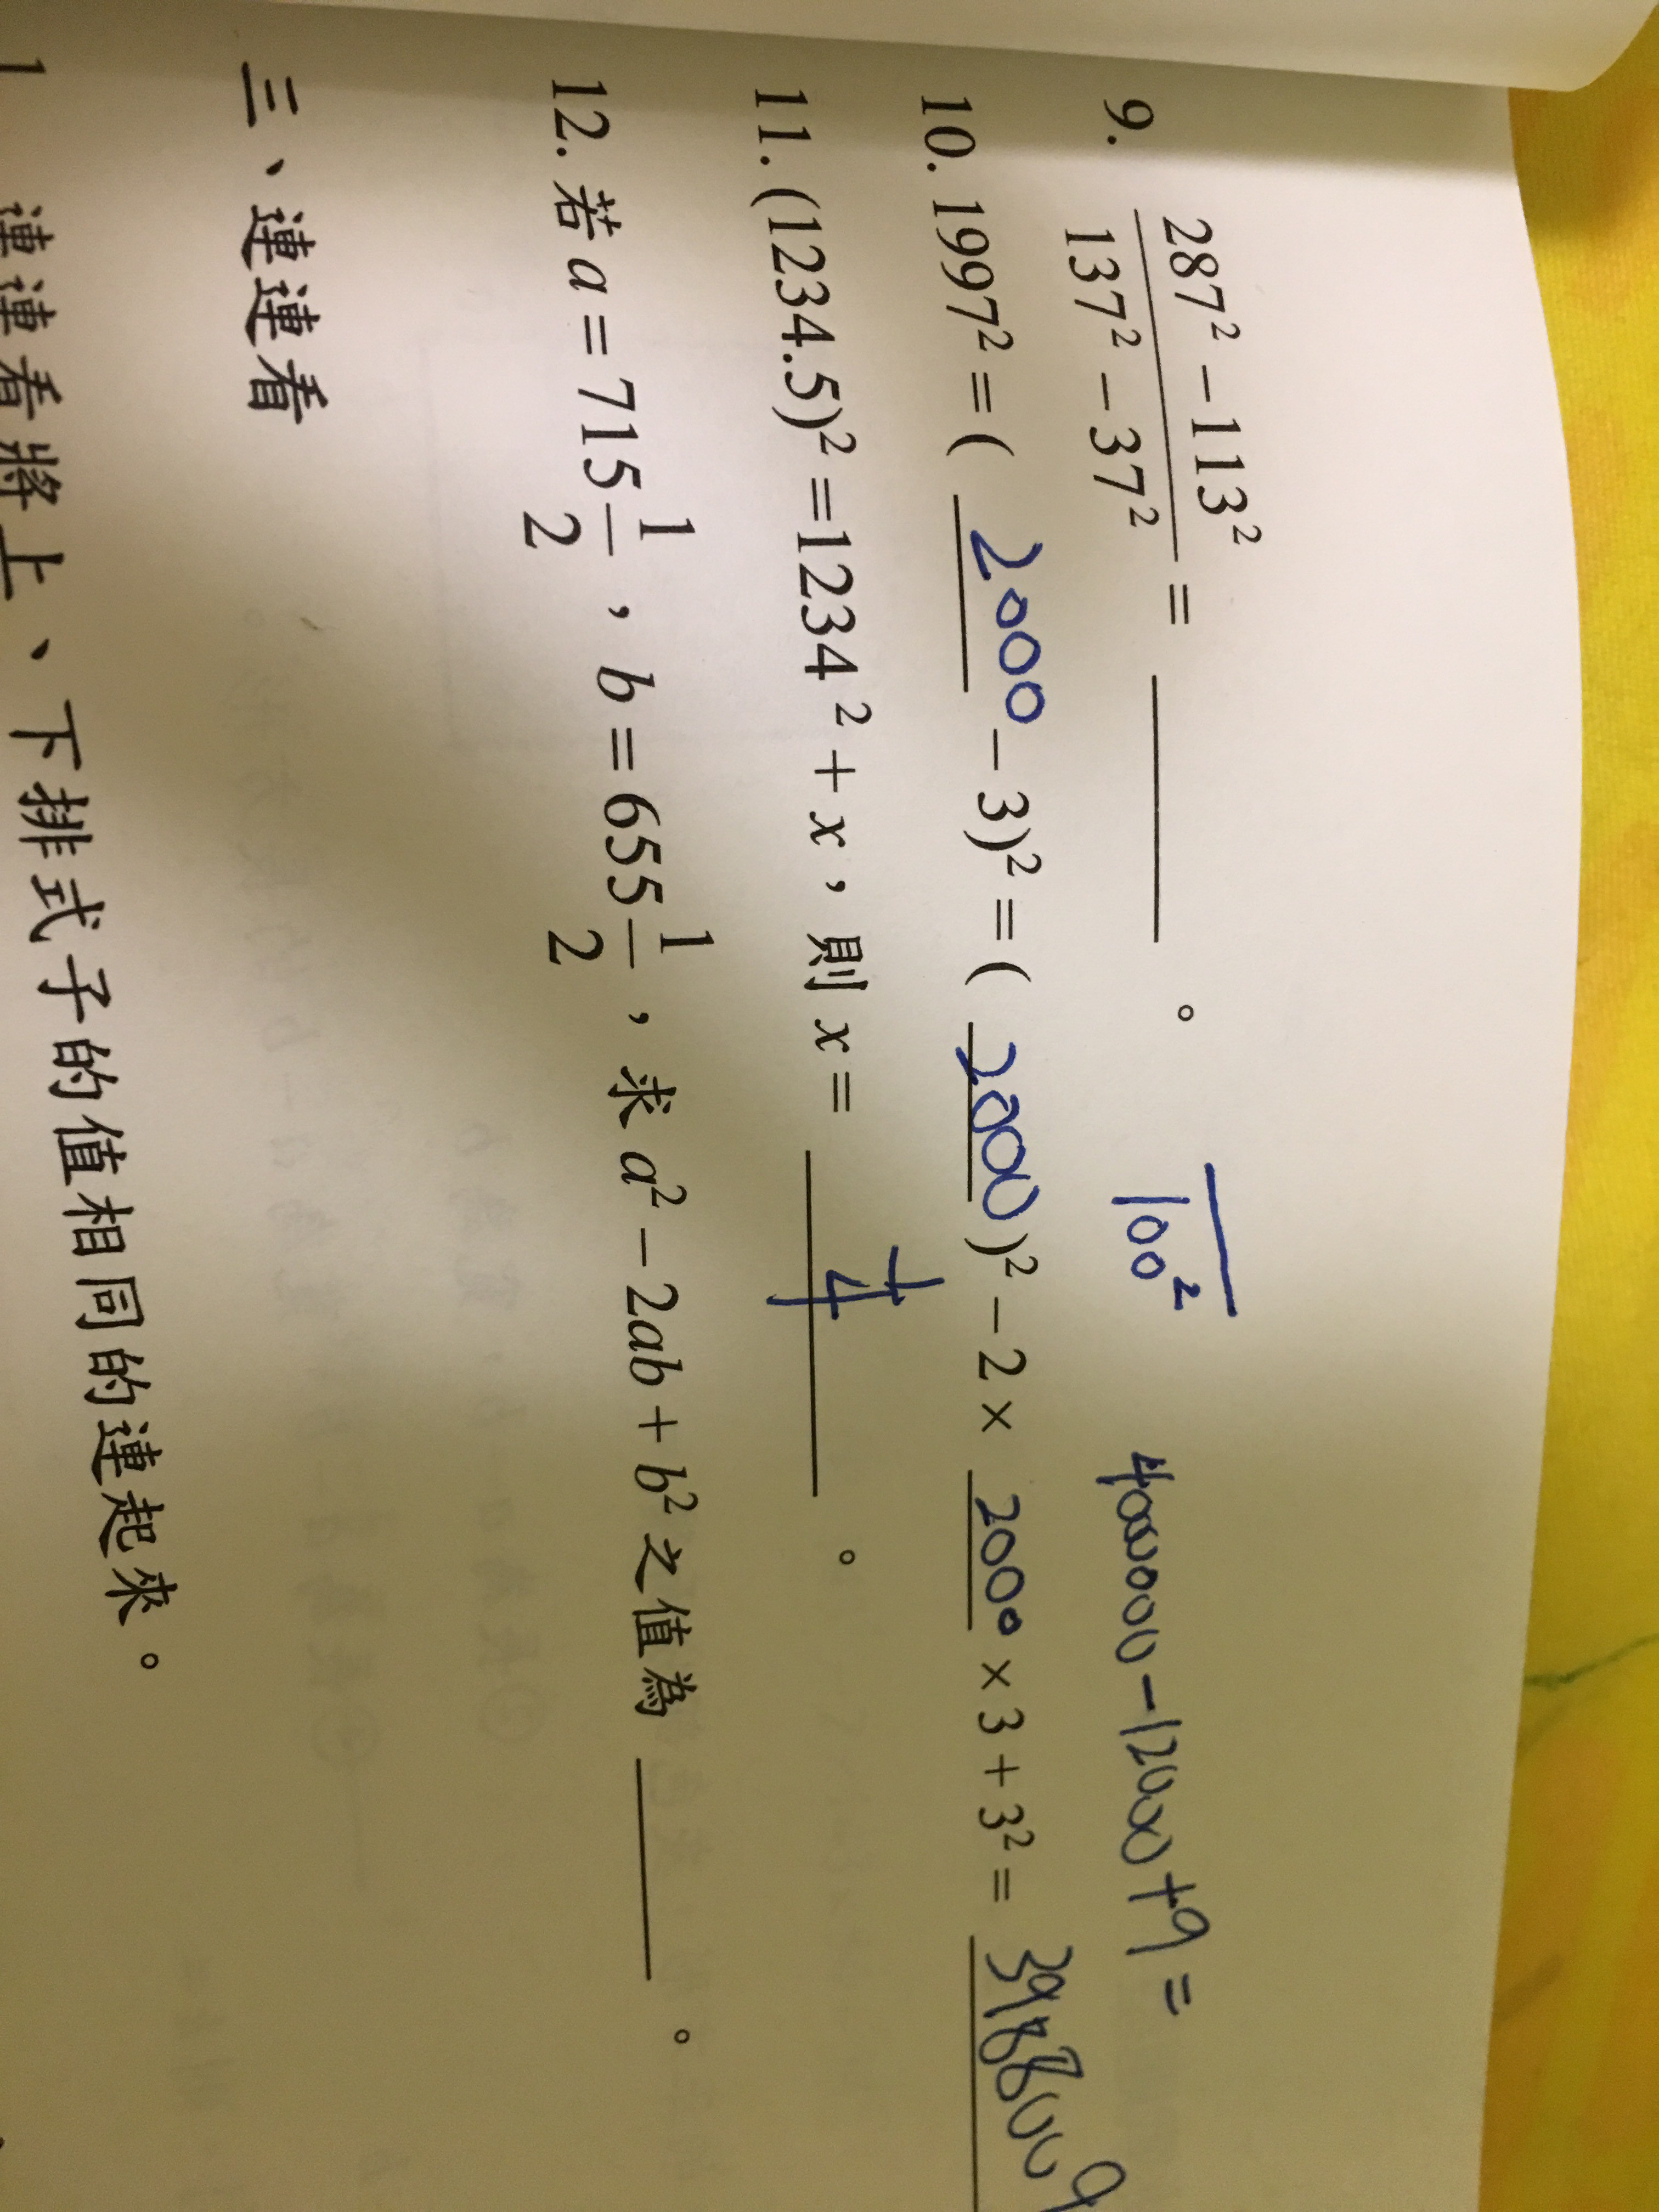 9. \frac{287² − 113²}{137² − 37²} = ______ 。 \frac{}{100²} 4000000 − 12000 + 9 =
10. 1997² = ( 2000 − 3)² = ( 2000 )² − 2 × 2000 × 3 + 3² = 3988009
11. (1234.5)² = 1234² + x，則 x = \frac{1}{4} 。
12. 若 a = 715\frac{1}{2}，b = 655\frac{1}{2}，求 a² − 2ab + b² 之值為 ______ 。
三、連連看
1 連連看將上、下排式子的值相同的連起來。